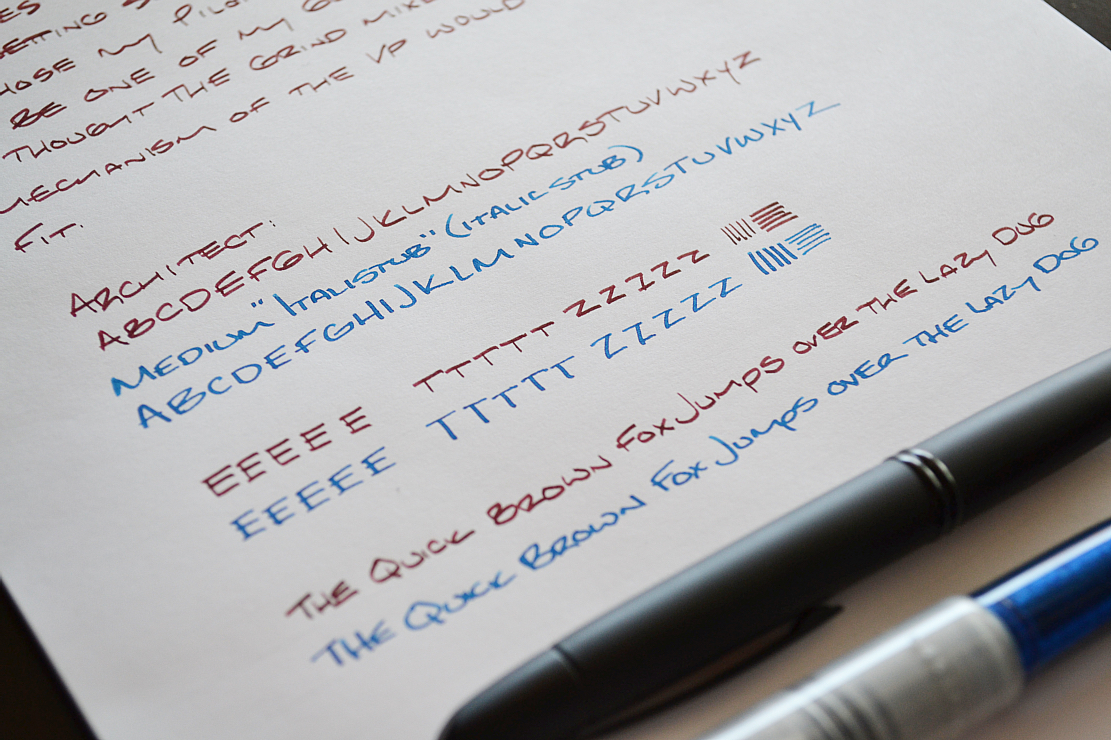 ES
GETTING S
HOSE MY PILO
BE ONE OF MY G
THOUGHT THE GRIND MIXE
MECHANISM OF THE VP WOULD
FIT.
ARCHITECT:
ABCDEFGHIJKLMNOPQRSTUVWXYZ
MEDIUM "ITALISTUB" (ITALIC STUB)
ABCDEFGHIJKLMNOPQRSTUVWXYZ
EEEEE TTTTT ZZZZZ
EEEEE TTTTT ZZZZZ
THE QUICK BROWN FOX JUMPS OVER THE LAZY DOG
THE QUICK BROWN FOX JUMPS OVER THE LAZY DOG